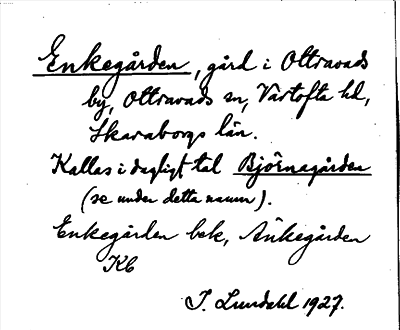 Enkegården, gård i Ottravads
by, Ottravads sn, Vartofta hd,
Skaraborgs län.
Kallas i dagligt tal Björnagården
(se under detta namn).
Enkegården bek, Änkegården
Kb
J. Lundahl 1927.